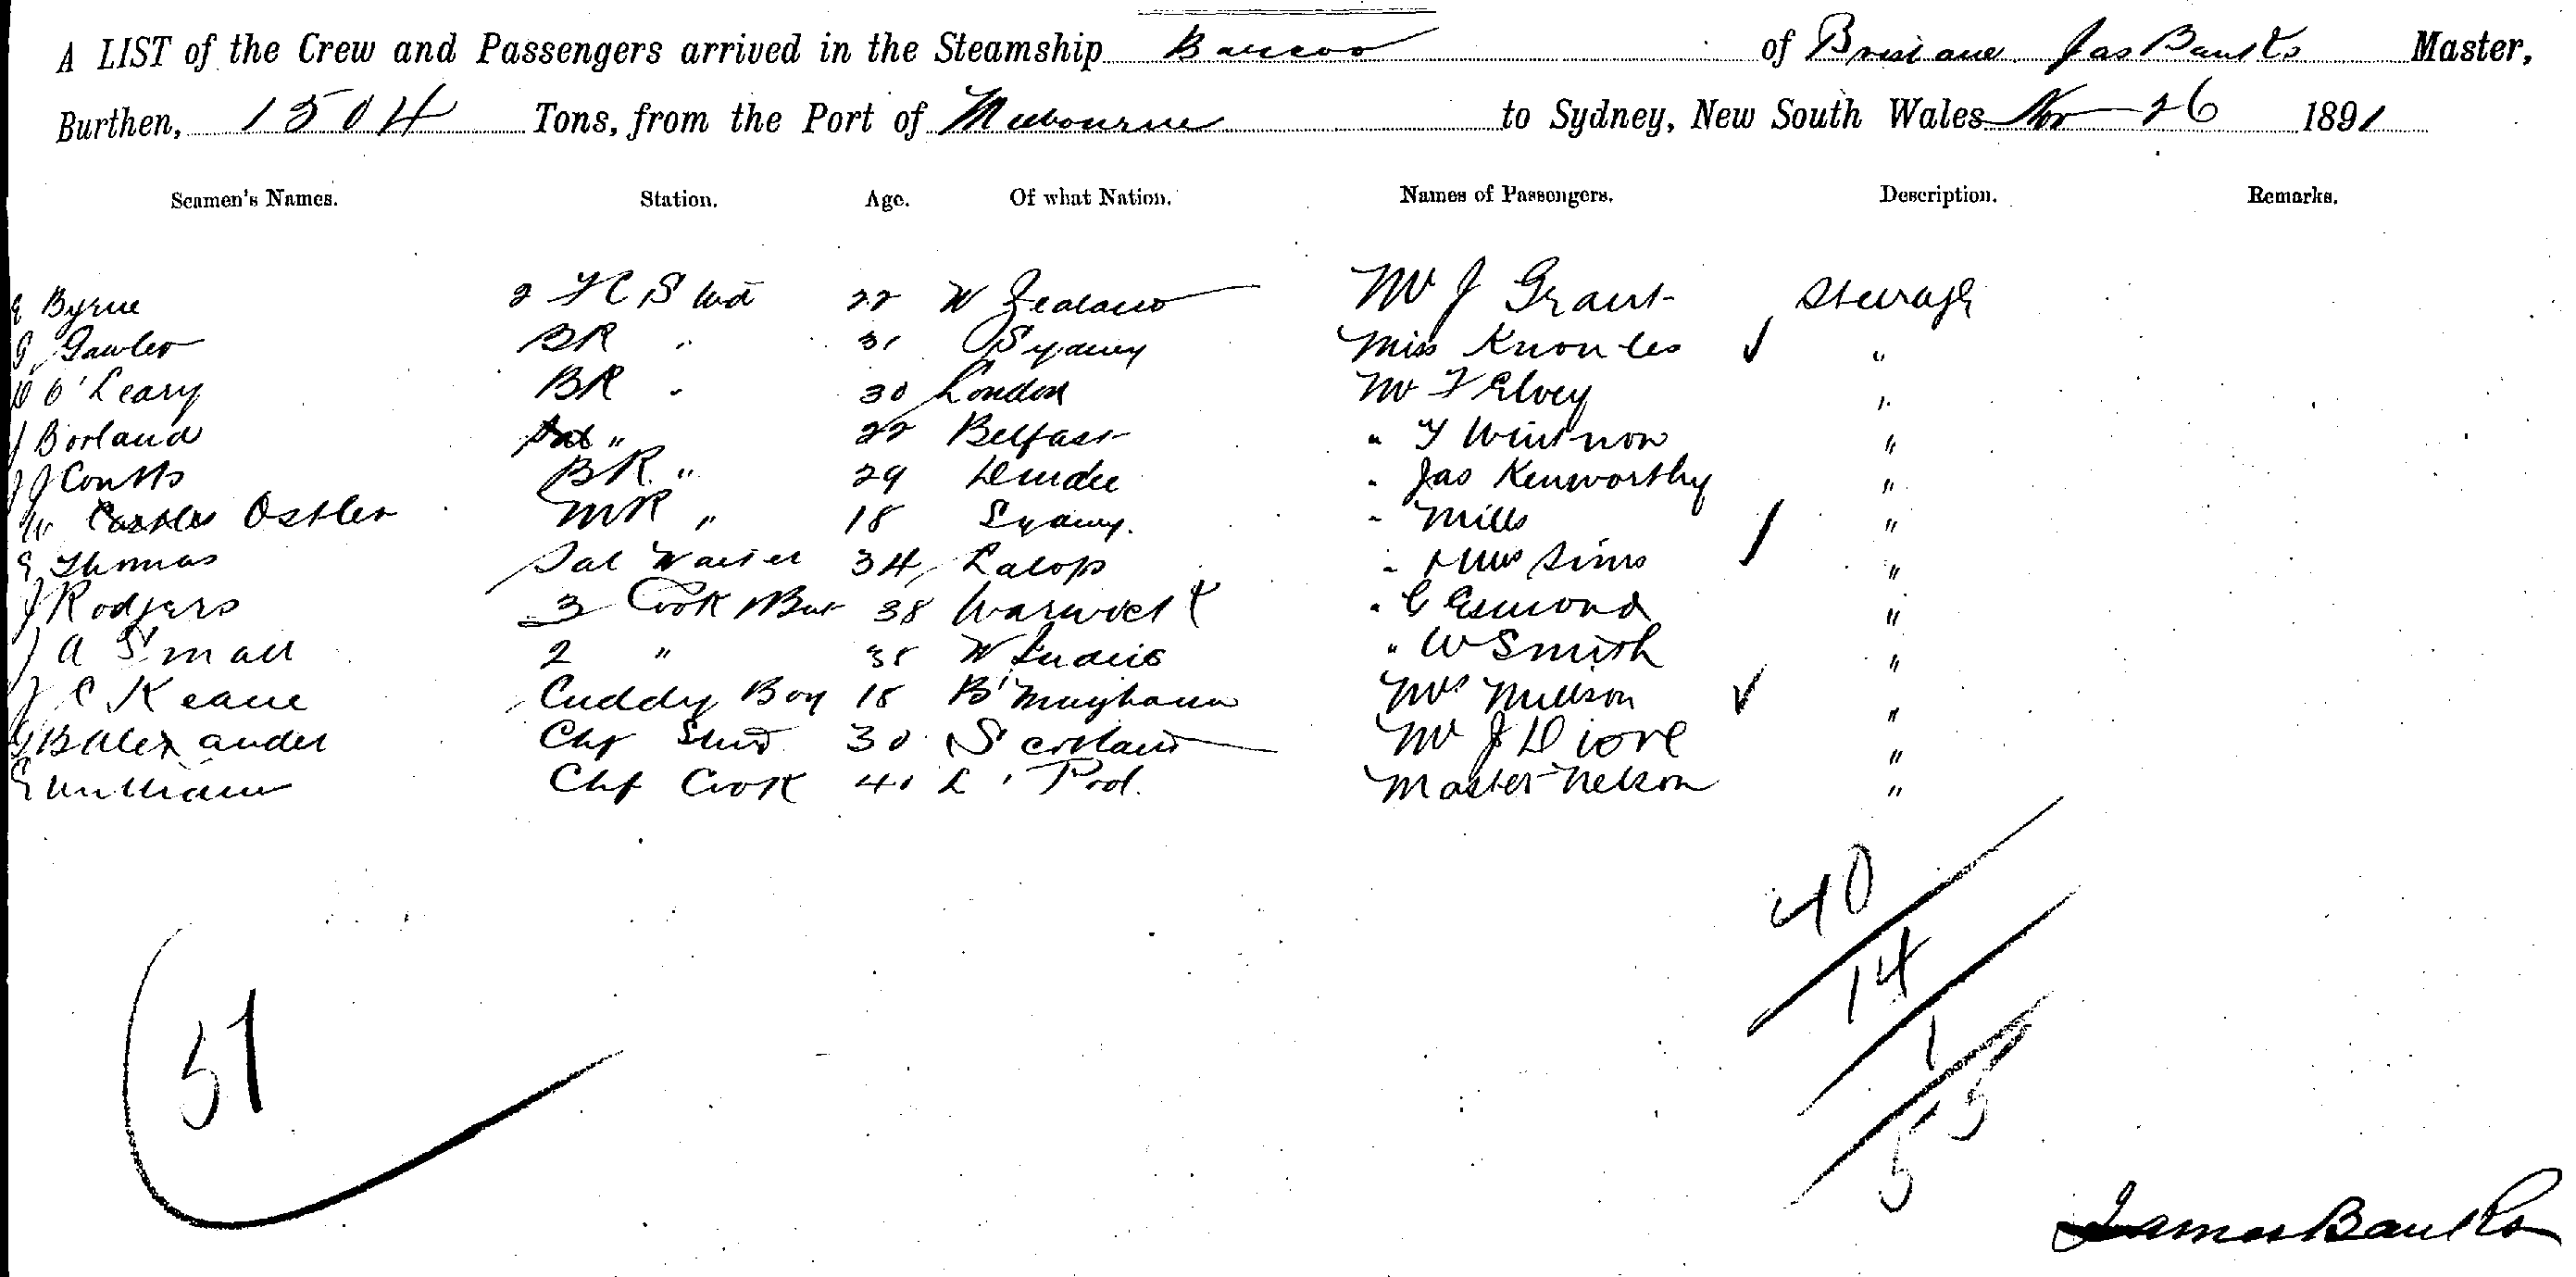 A LIST of the Crew and Passengers arrived in the Steamship Barcoo of Brisbane Jas Banks Master,
Burthen, 1504 Tons, from the Port of Melbourne to Sydney, New South Wales Nov 26 1891
Seamen's Names. Station. Age. Of what Nation. Names of Passengers. Description. Remarks.
E Byrne 2 F C Stwd 22 N Zealand Mr J Grant Steerage
G Gawler BR " 31 Sydney Miss Knowles "
O'Leary BR " 30 London Mr F Elvey "
J Borland Sal " 22 Belfast " Winsnow "
J J Coutts BR. " 29 Dundee " Jas Kenworthy "
W Ostler MR " 18 Sydney. " Mills "
E Thomas Sal Waiter 34 Salop " & Mrs Sims "
J Rodgers 3 Cook & But 38 Warwick " C Esmond "
J A Small 2 " 38 W Indies " W Smith "
J C Keane Cuddy Boy 18 B'mingham Mrs Millson "
G B Alexander Chf Stwd 30 Scotland Mr J "
E Chf Cook 41 L'Pool. Master Nelson "
40
14
1
55
51
James Banks